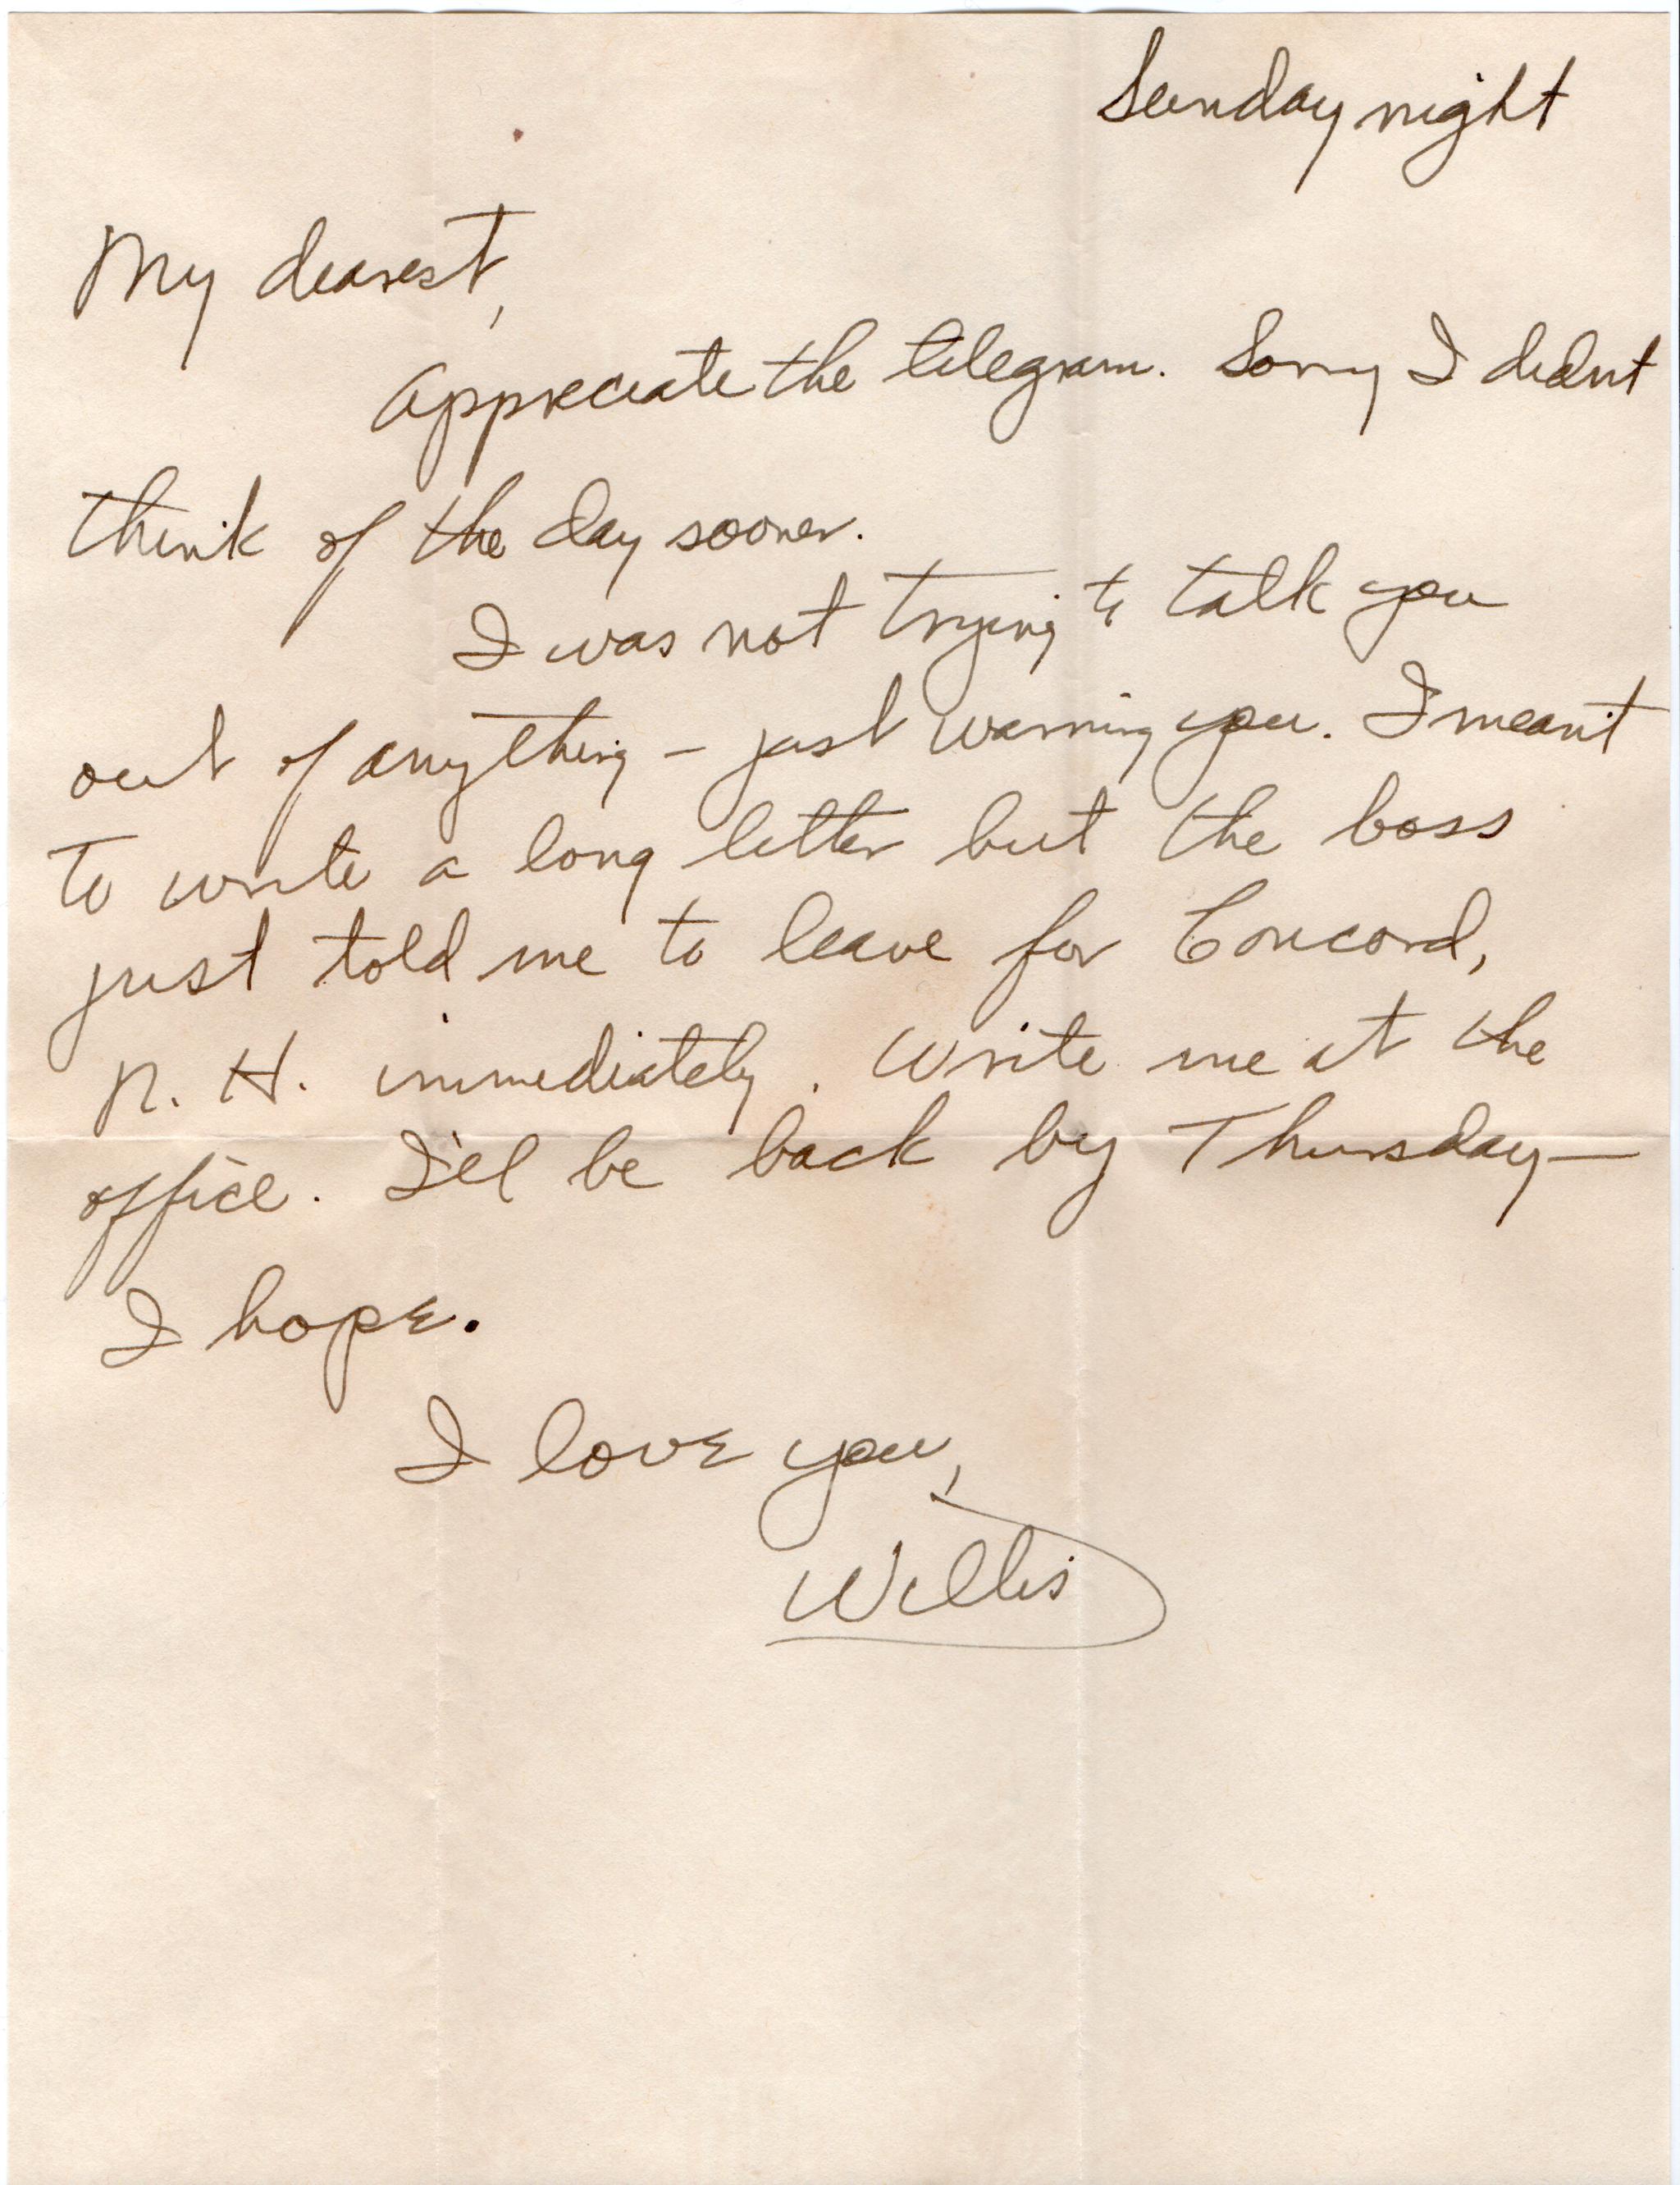 Sunday night
My dearest,
Appreciate the telegram. Sorry I didnt
think of the day sooner.
I was not trying to talk you
out of anything – just warning you. I meant
to write a long letter but the boss
just told me to leave for Concord,
N. H. immediately. Write me at the
office. I'll be back by Thursday—
I hope.
I love you,
Willis